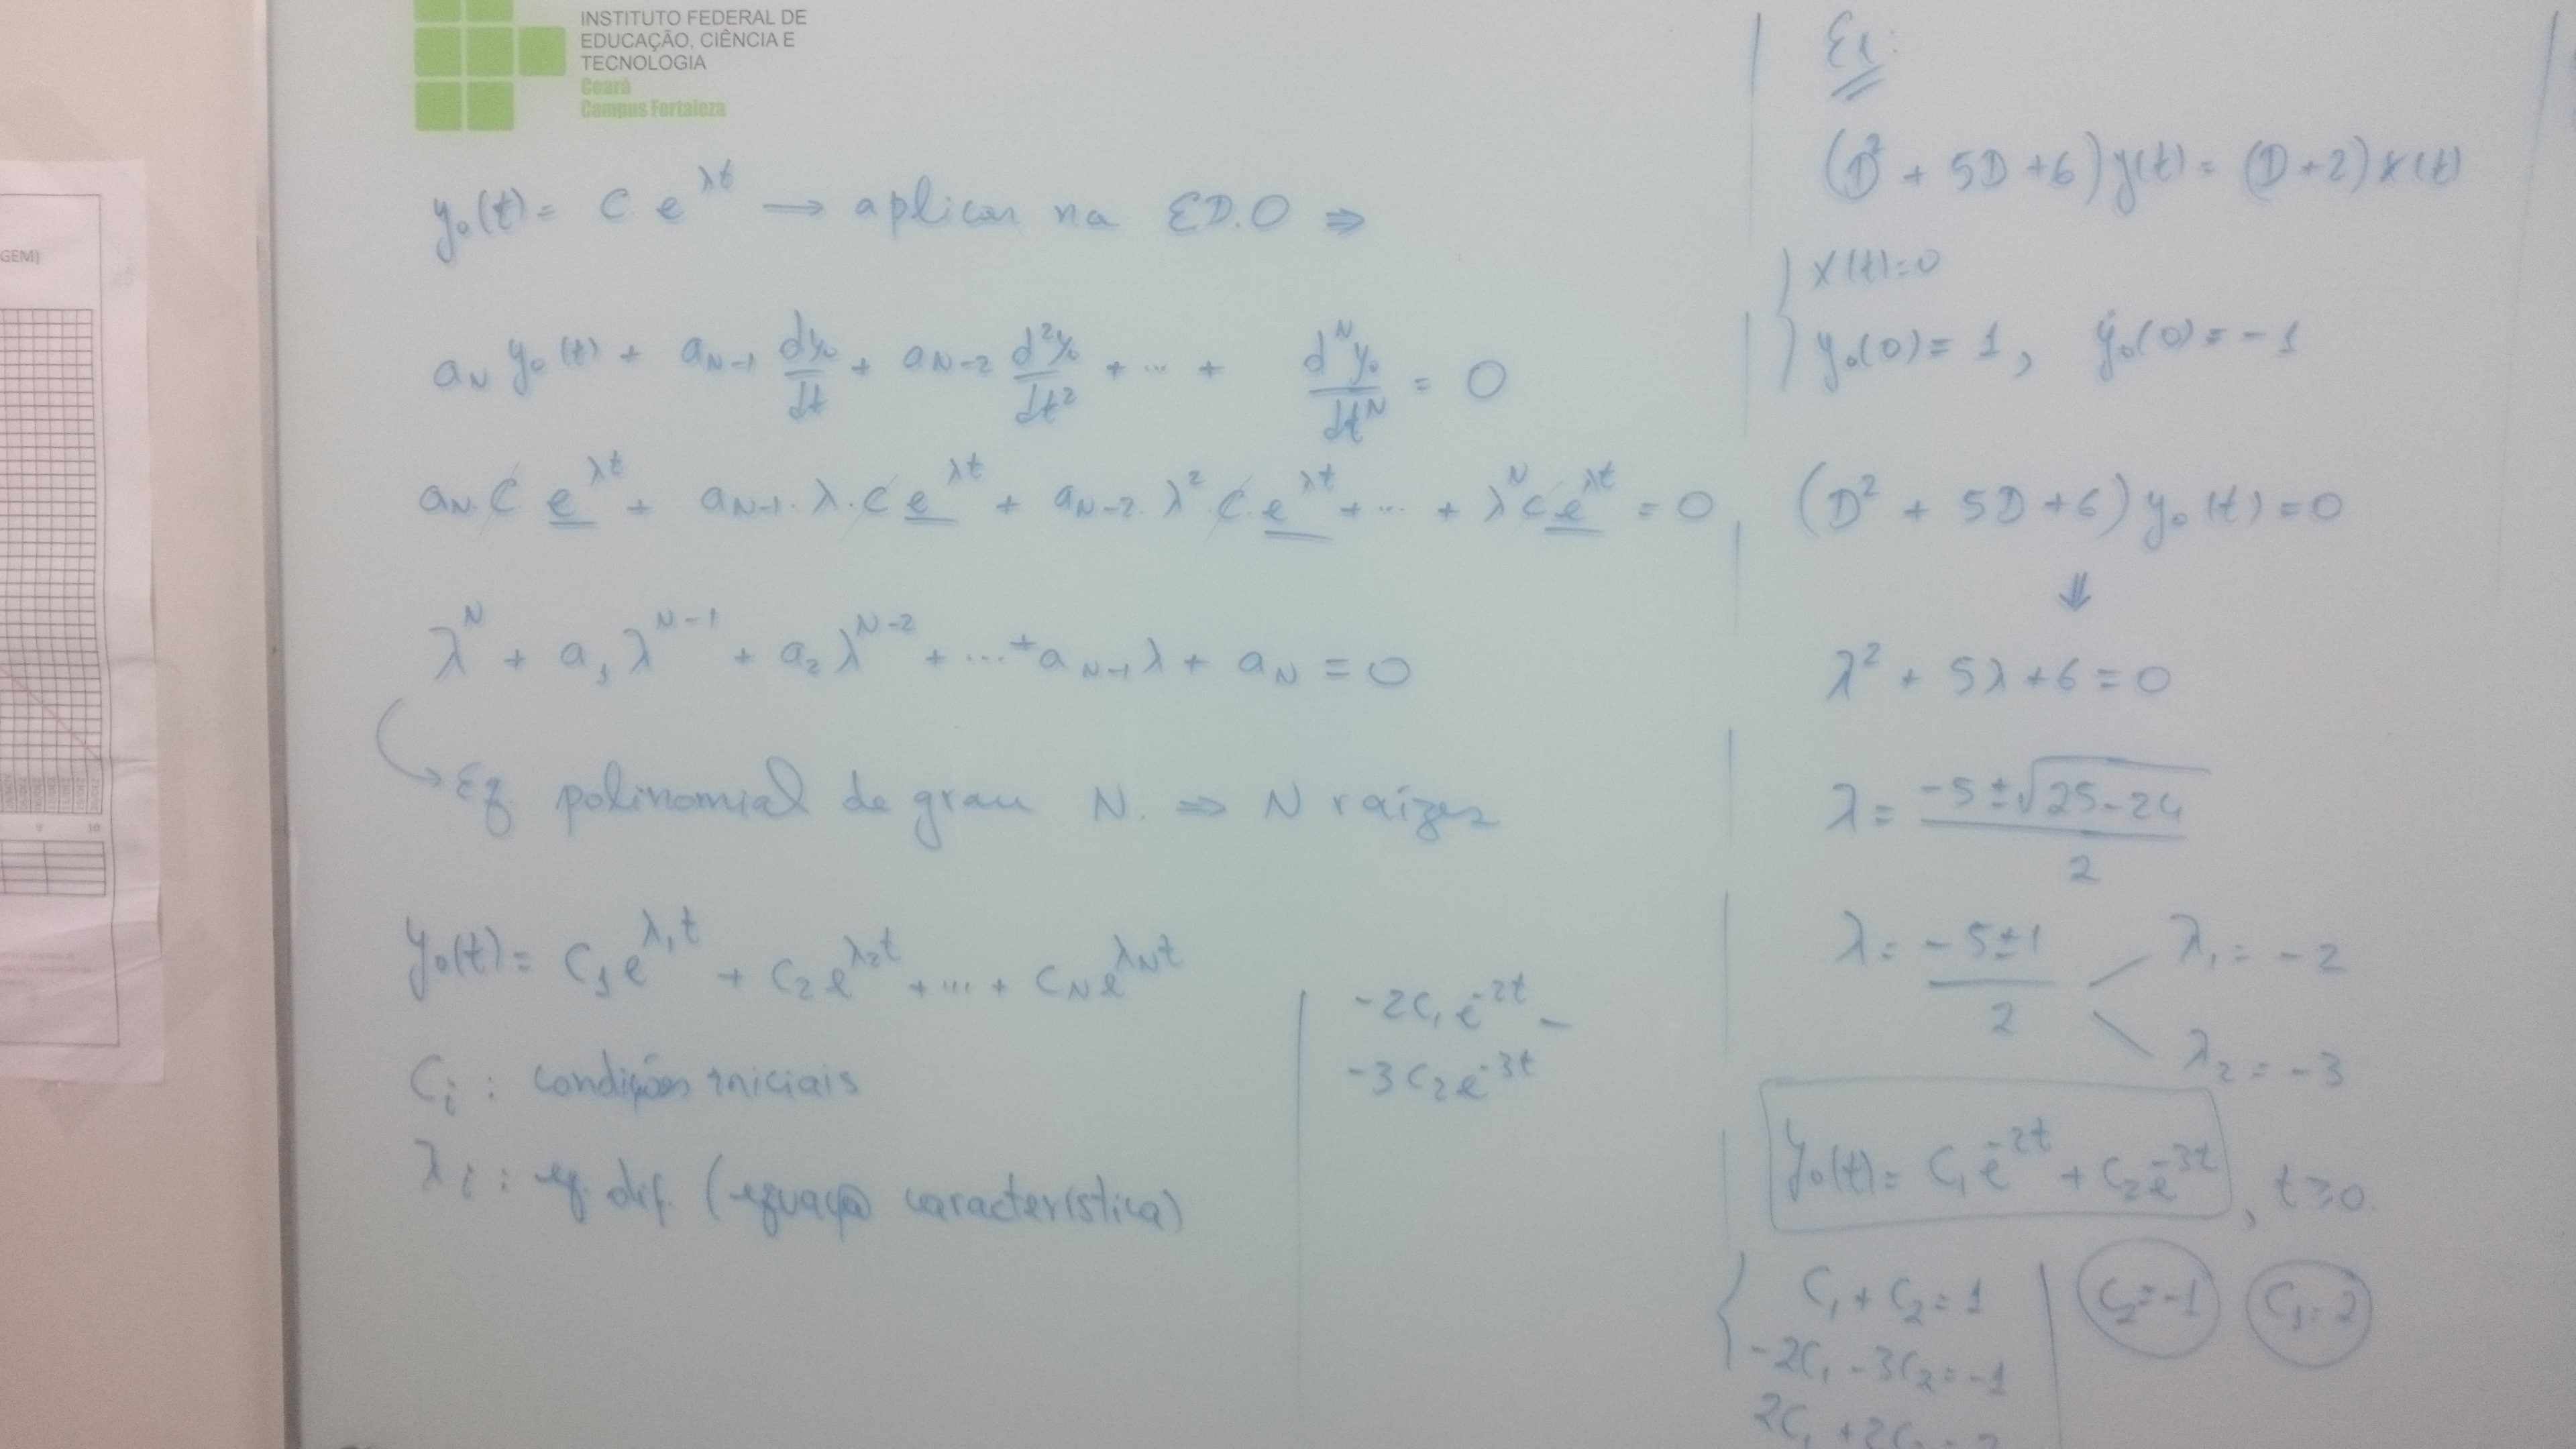 INSTITUTO FEDERAL DE
EDUCAÇÃO, CIÊNCIA E
TECNOLOGIA
Ceará
Campus Fortaleza
GEM)
9 10
y₀(t) = C e^{λt} → aplicar na E.D.O ⇒
a_N y₀(t) + a_{N-1} dy₀/dt + a_{N-2} d²y₀/dt² + ... + d^N y₀/dt^N = 0
a_N. C e^{λt} + a_{N-1}. λ. C e^{λt} + a_{N-2}. λ² C e^{λt} + ... + λ^N C e^{λt} = 0
λ^N + a₁ λ^{N-1} + a₂ λ^{N-2} + ... + a_{N-1} λ + a_N = 0
Eq polinomial de grau N. ⇒ N raízes
y₀(t) = C₁ e^{λ₁t} + C₂ e^{λ₂t} + ... + C_N e^{λ_N t}
C_i : condições iniciais
λ_i : eq. dif. (equação característica)
-2C₁ e^{-2t} -
-3C₂ e^{-3t}
(D² + 5D + 6) y(t) = (D + 2) x(t)
x(t) = 0
y₀(0) = 1, ẏ₀(0) = -1
(D² + 5D + 6) y₀(t) = 0
⇓
λ² + 5λ + 6 = 0
λ = (-5 ± √(25 - 24)) / 2
λ = (-5 ± 1) / 2 λ₁ = -2
λ₂ = -3
y₀(t) = C₁ e^{-2t} + C₂ e^{-3t}, t ≥ 0.
C₁ + C₂ = 1 C₂ = -1 C₁ = 2
-2C₁ - 3C₂ = -1